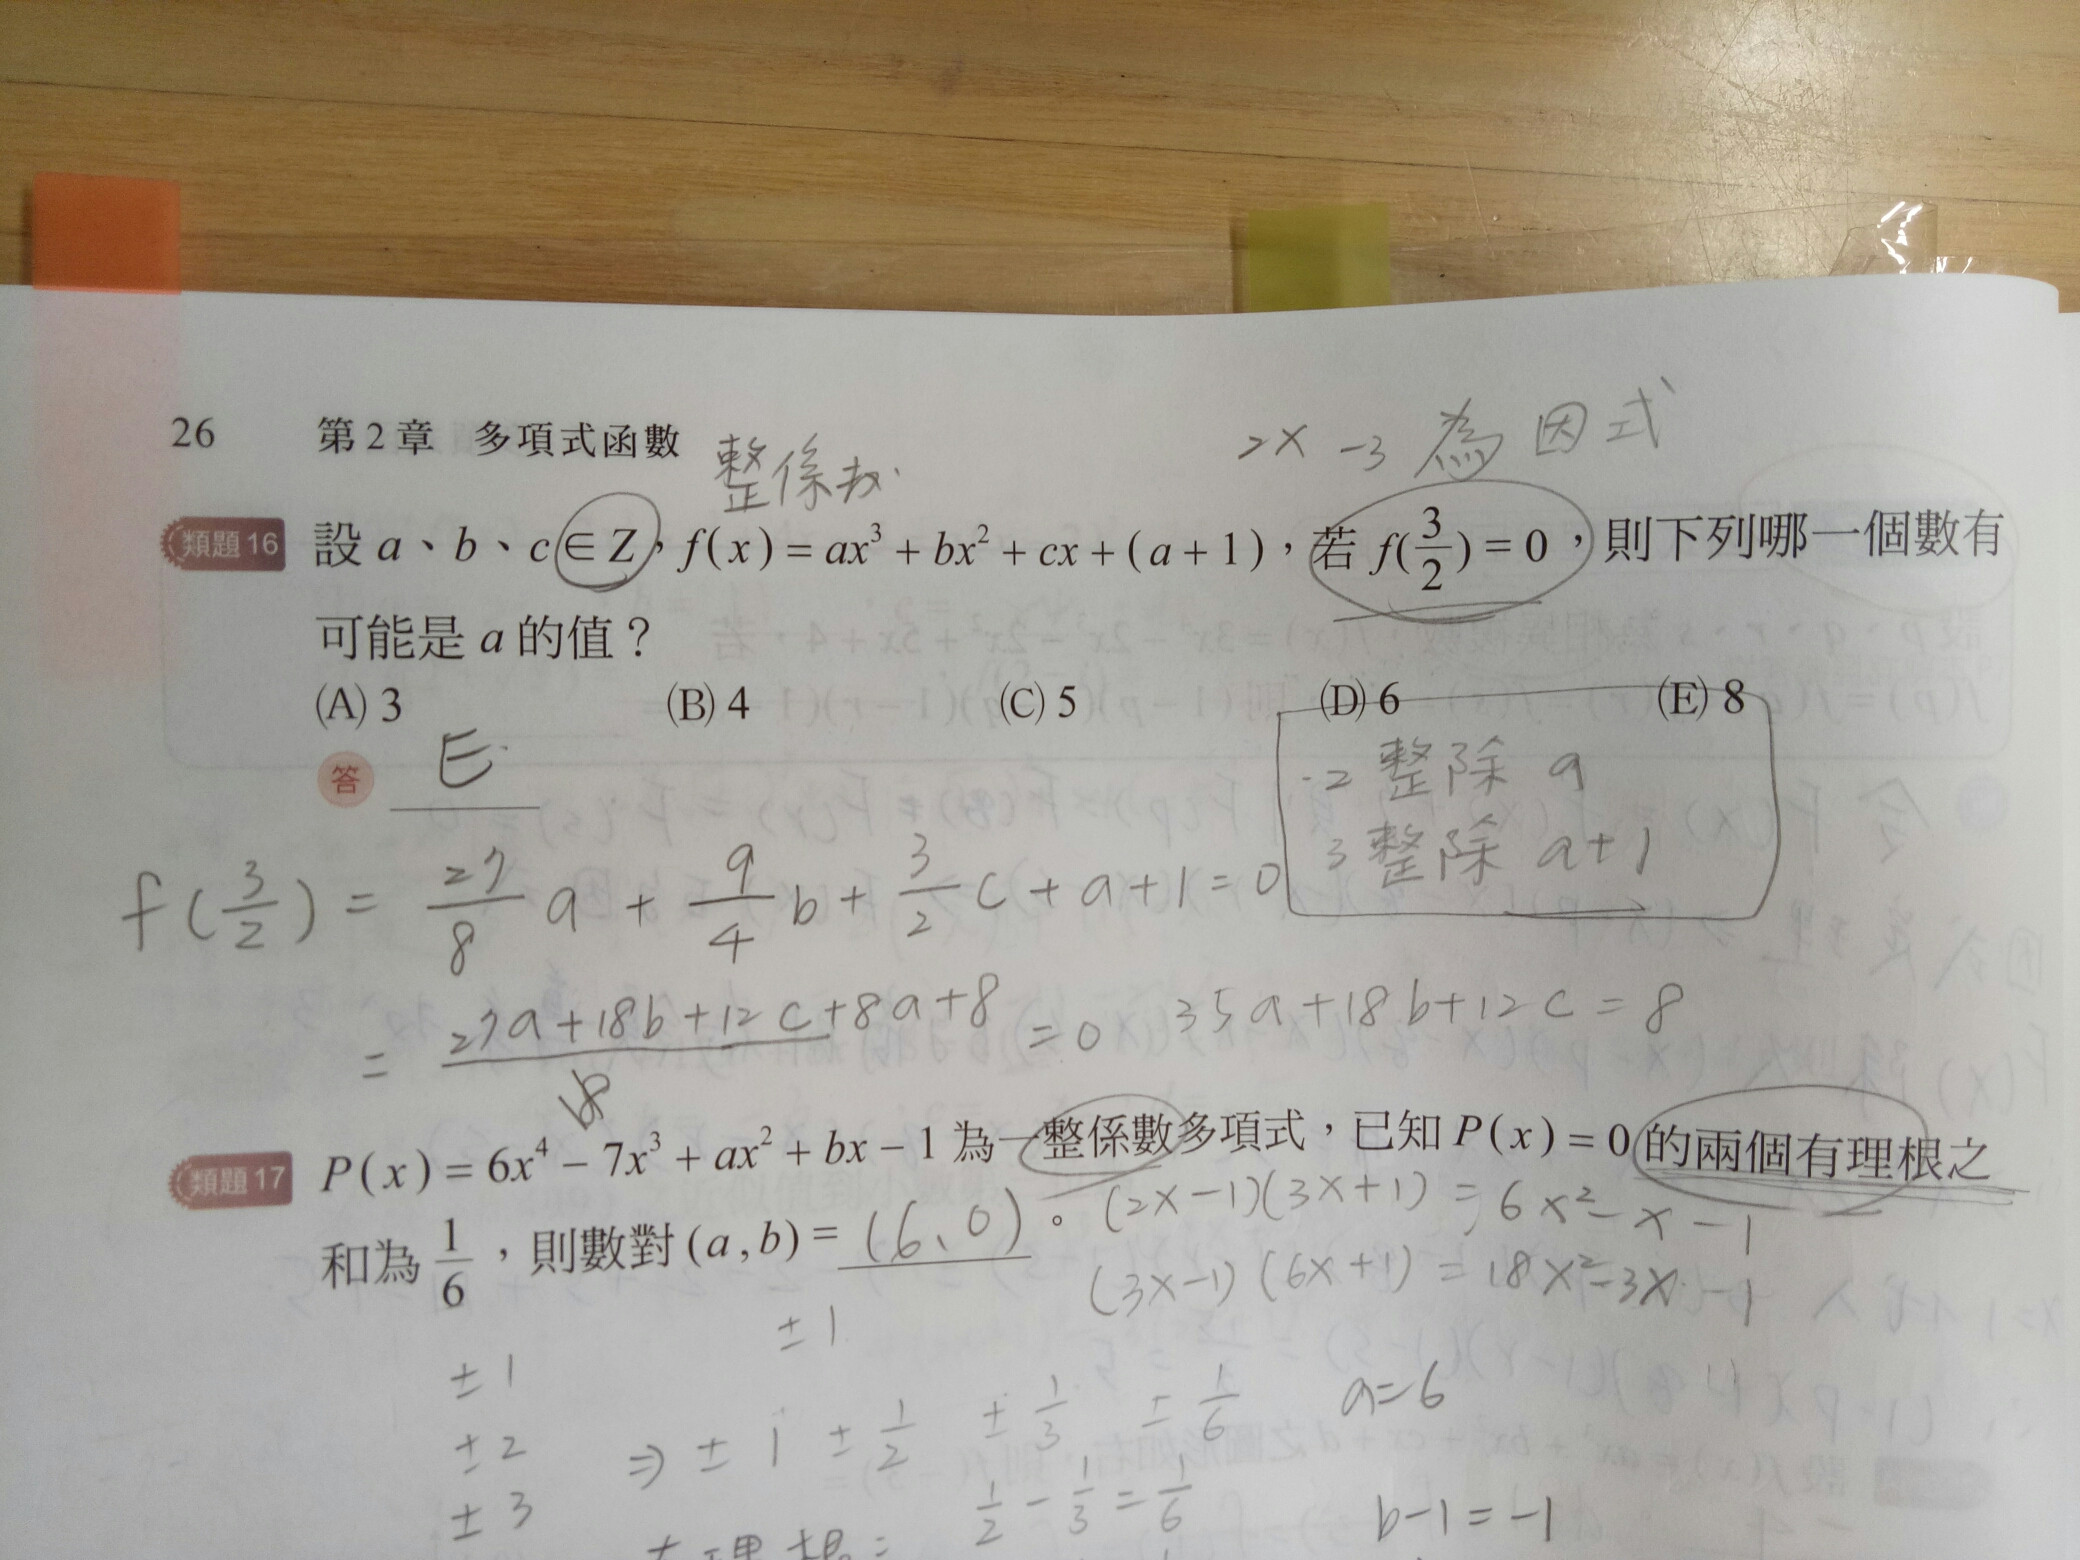 26 第2章 多項式函數
整係数
2x -3 為因式
類題16 設 a、b、c ∈ Z，f(x) = ax³ + bx² + cx + (a + 1)，若 f(3/2) = 0，則下列哪一個數有
可能是 a 的值？
(A) 3 (B) 4 (C) 5 (D) 6 (E) 8
答 E
2 整除 a
3 整除 a+1
f(3/2) = 27/8 a + 9/4 b + 3/2 c + a + 1 = 0
= (27a+18b+12c+8a+8)/8 = 0 35a+18b+12c = 8
類題17 P(x) = 6x⁴ − 7x³ + ax² + bx − 1 為一整係數多項式，已知 P(x) = 0 的兩個有理根之
和為 1/6，則數對 (a , b) = (6、0)。
(2x−1)(3x+1) = 6x²−x−1
(3x−1)(6x+1) = 18x²−3x−1
±1
±1
±2
±3
⇒ ±1 ±1/2 ±1/3 ±1/6
1/2 − 1/3 = 1/6
a=6
b−1=−1